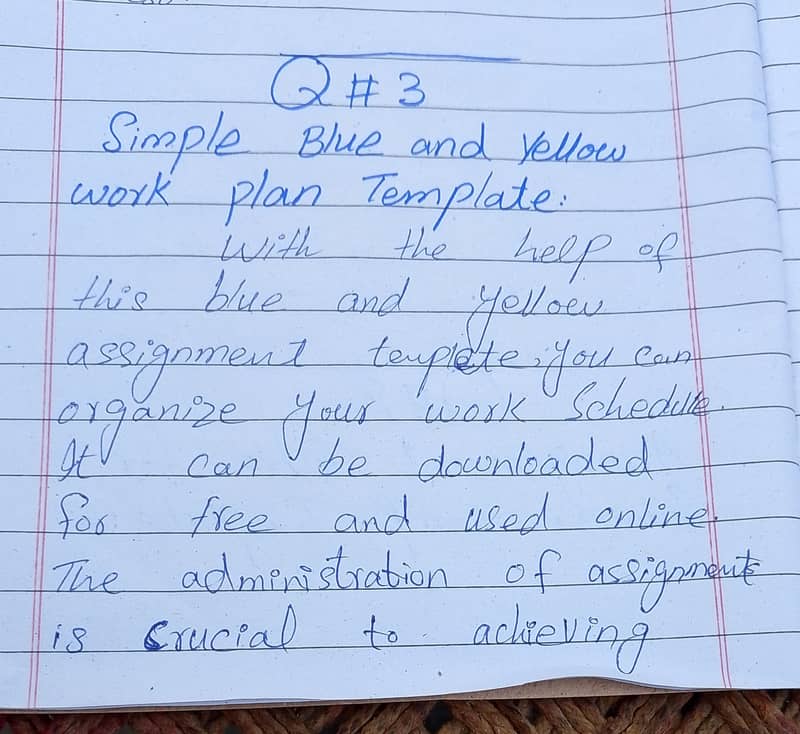 Q # 3
Simple Blue and Yellow
work plan Template:
With the help of
this blue and yellow
assignment templete, you can
organize your work Schedule.
It can be downloaded
for free and used online.
The administration of assignments
is crucial to achieving